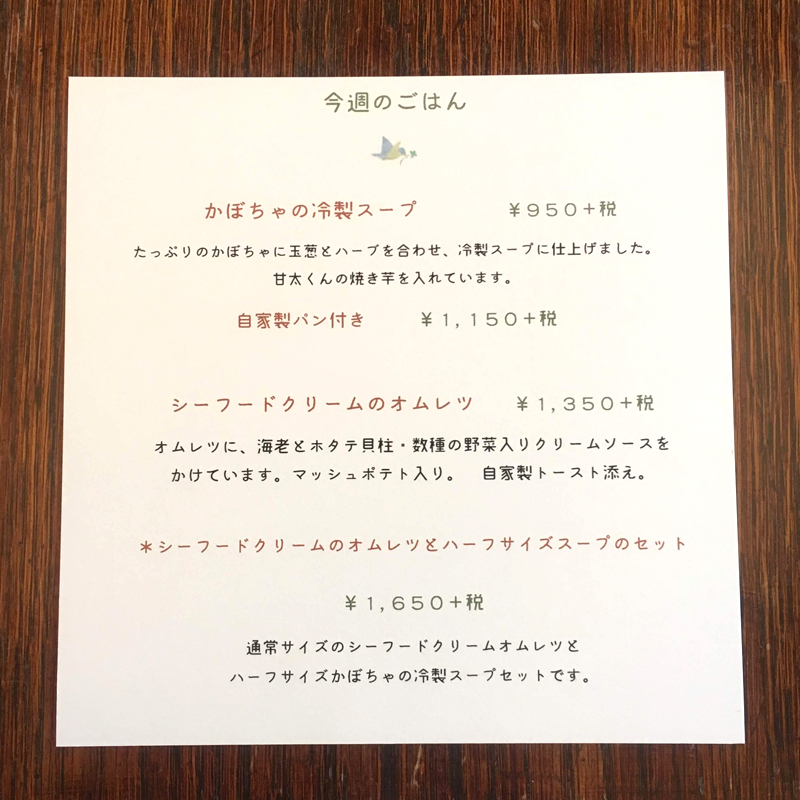 今週のごはん
かぼちゃの冷製スープ ￥９５０＋税
たっぷりのかぼちゃに玉葱とハーブを合わせ、冷製スープに仕上げました。
甘太くんの焼き芋を入れています。
自家製パン付き ￥１,１５０＋税
シーフードクリームのオムレツ ￥１,３５０＋税
オムレツに、海老とホタテ貝柱・数種の野菜入りクリームソースを
かけています。マッシュポテト入り。 自家製トースト添え。
＊シーフードクリームのオムレツとハーフサイズスープのセット
￥１,６５０＋税
通常サイズのシーフードクリームオムレツと
ハーフサイズかぼちゃの冷製スープセットです。